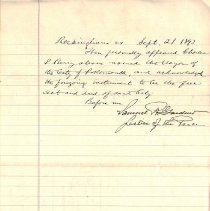 Rockingham ss. Sept. 21 1897
Then personally appeared Charles
P. Berry above named the Mayor of
the City of Portsmouth, and acknowledged
the foregoing instrument to be the free
act and deed of said City
Before me
Samuel W.
Justice of the Peace